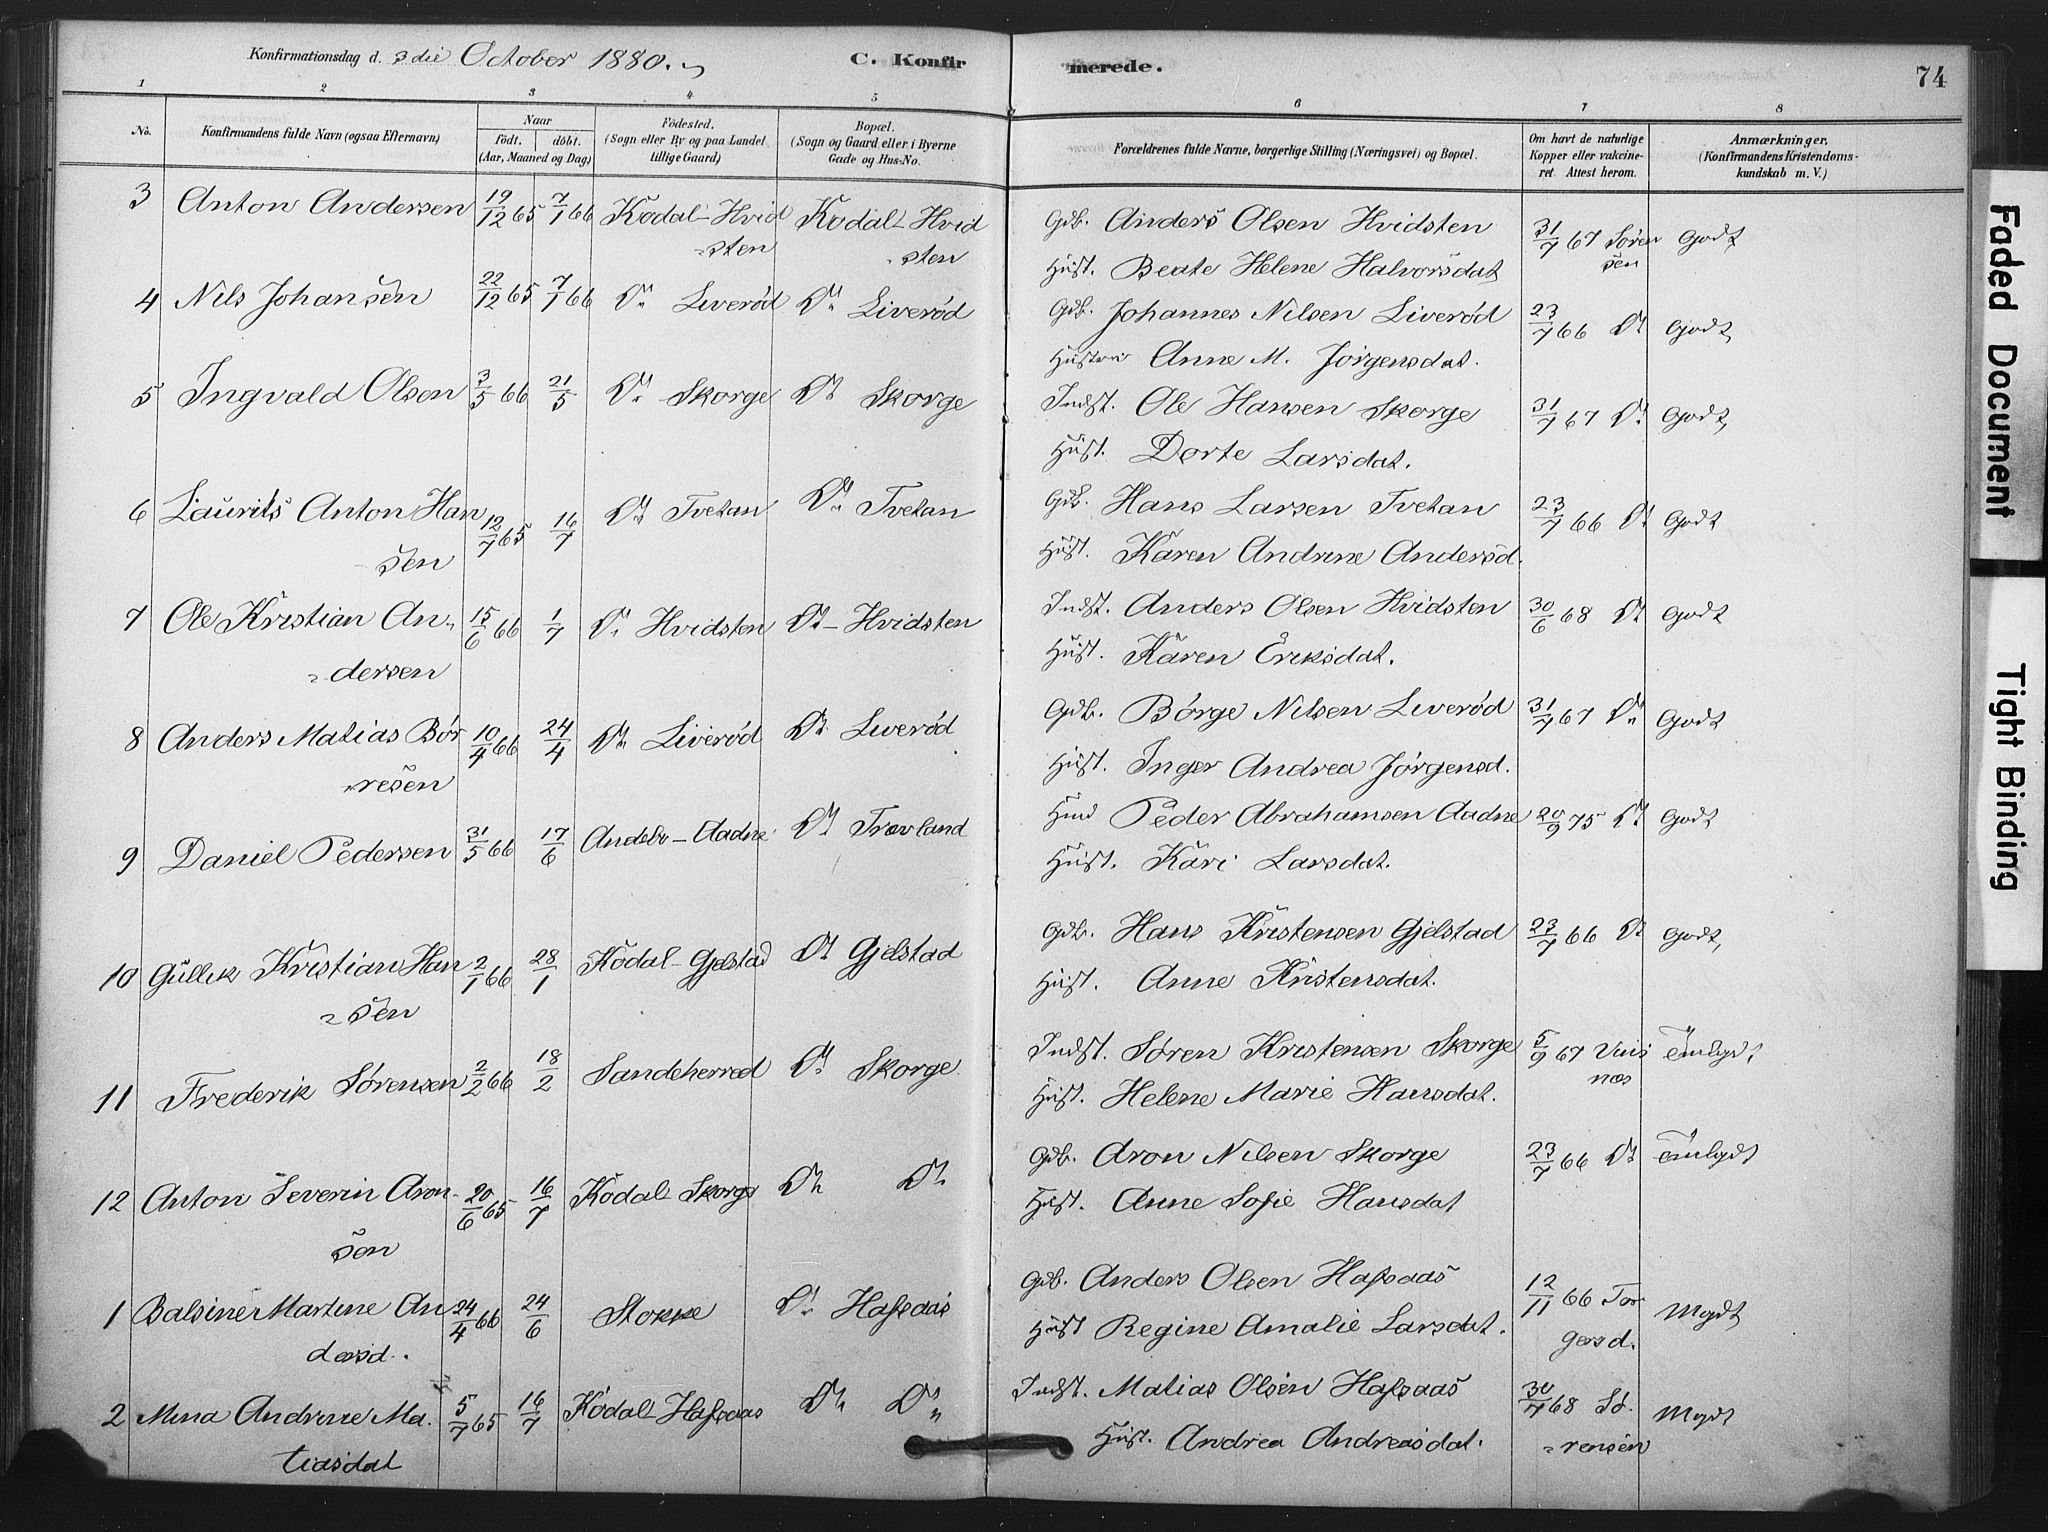 Konfirmationsdag d. 3die October 1880. C. Konfirmerede. 74
1 2 3 4 5 6 7 8
No. Konfirmandens fulde Navn (ogsaa Efternavn) Naar födt. döbt. (Aar, Maaned og Dag) Födested. (Sogn eller By og paa Landet tillige Gaard) Bopæl. (Sogn og Gaard eller i Byerne Gade og Hus-No. Forældrenes fulde Navne, borgerlige Stilling (Næringsvei) og Bopæl. Om havt de naturlige Kopper eller vakcineret. Attest herom. Anmærkninger. (Konfirmandens Kristendomskundskab m. V.)
3 Anton Andersen 19/12 65 7/1 66 Kodal-Hvid Kodal-Hvid Gdb. Anders Olsen Hvidsten 31/7 67 Sören Godt
sten sten Hust. Beate Helene Halvorsdat sen
4 Nils Johansen 22/12 65 7/1 66 Do Liverød Do Liverød Gdb. Johannes Nilsen Liverød 23/7 66 Do Godt
Hustru Anne M. Jørgensdat.
5 Ingvald Olsen 3/5 66 21/5 Do Skorge Do Skorge Indst. Ole Hansen Skorge 31/7 67 Do Godt
Hust. Dorte Larsdat.
6 Laurits Anton Han 12/7 65 16/7 Do Tvetan Do Tvetan Gdb. Hans Larsen Tvetan 23/7 66 Do Godt
sen Hust. Karen Andrine Andersd.
7 Ole Kristian An- 15/6 66 1/7 Do Hvidsten Do-Hvidsten Indst. Anders Olsen Hvidsten 30/6 68 Do Godt
dersen Hust. Karen Eriksdat.
8 Anders Matias Bør 10/4 66 24/4 Do Liverød Do Liverød Gdb. Börge Nilsen Liverød 31/7 67 Do Godt
resen Hust. Inger Andrea Jørgensd.
9 Daniel Pedersen 31/5 66 17/6 Andebo-Aadne Do Trevland Hmd Peder Abrahamsen Aadne 20/9 75 Do Godt
Hust. Kari Larsdat.
10 Gullik Kristian Han 2/1 66 28/1 Kodal-Gjelstad Do Gjelstad Gdb. Hans Kristensen Gjelstad 23/7 66 Do Godt
sen Hust. Anne Kristensdat.
11 Frederik Sørensen 2/2 66 18/2 Sandeherred Do Skorge Indst. Søren Kristensen Skorge 5/9 67
Hust. Helene Marie Hansdat.
12 Anton Severin Aron- 20/6 65 16/7 Kodal Skorge Do Do Gdb. Aron Nilsen Skorge 23/7 66 Do
sen Hust. Anne Sofie Hansdat
1 Balsine Martine An 24/4 66 24/6 Stokke Do Hafsaas Gdb. Anders Olsen Hafsaas 12/11 66 Tor Mgdt
dersd. Hust Regine Amalie Larsdat. gersd.
2 Mina Andrine Ma- 5/7 65 16/7 Kodal-Hafsaas Do Do Indst. Matias Olsen Hafsaas 30/7 68 Sö- Mgdt
tiasdat Hust. Andrea Andreasdat. rensen
Faded Document
Tight Binding